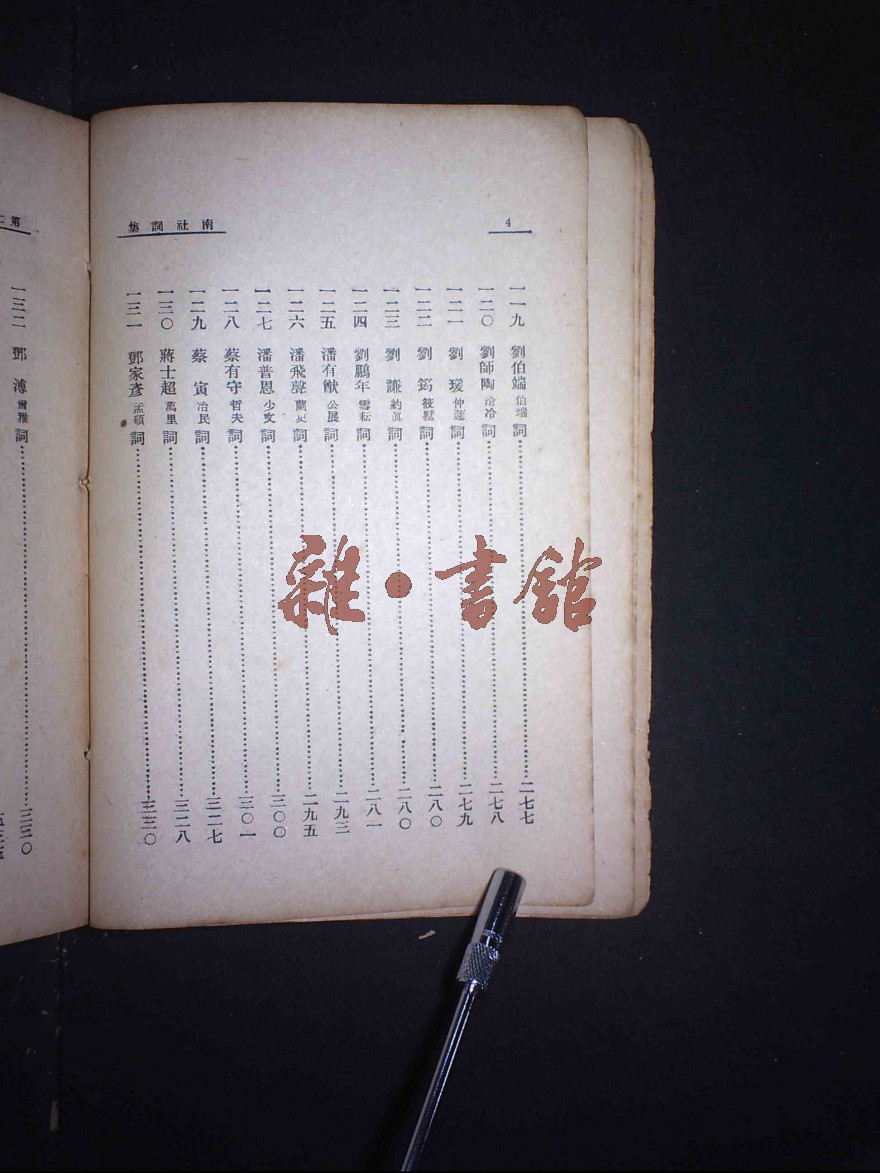 4
南社詞集
一一九 劉伯端 伯端 詞 二七七
一二〇 劉師陶 滄冷 詞 二七八
一二一 劉瑗 仲蘧 詞 二七九
一二二 劉筠 筱墅 詞 二八〇
一二三 劉謙 約眞 詞 二八〇
一二四 劉鵬年 雪耘 詞 二八一
一二五 潘有猷 公展 詞 二九三
一二六 潘飛聲 蘭史 詞 二九五
一二七 潘普恩 少文 詞 三〇〇
一二八 蔡有守 哲夫 詞 三〇一
一二九 蔡寅 冶民 詞 三二七
一三〇 蔣士超 萬里 詞 三二八
一三一 鄧家彥 孟碩 詞 三三〇
第二
一三二 鄧溥 爾雅 詞 三三〇
雜·書館